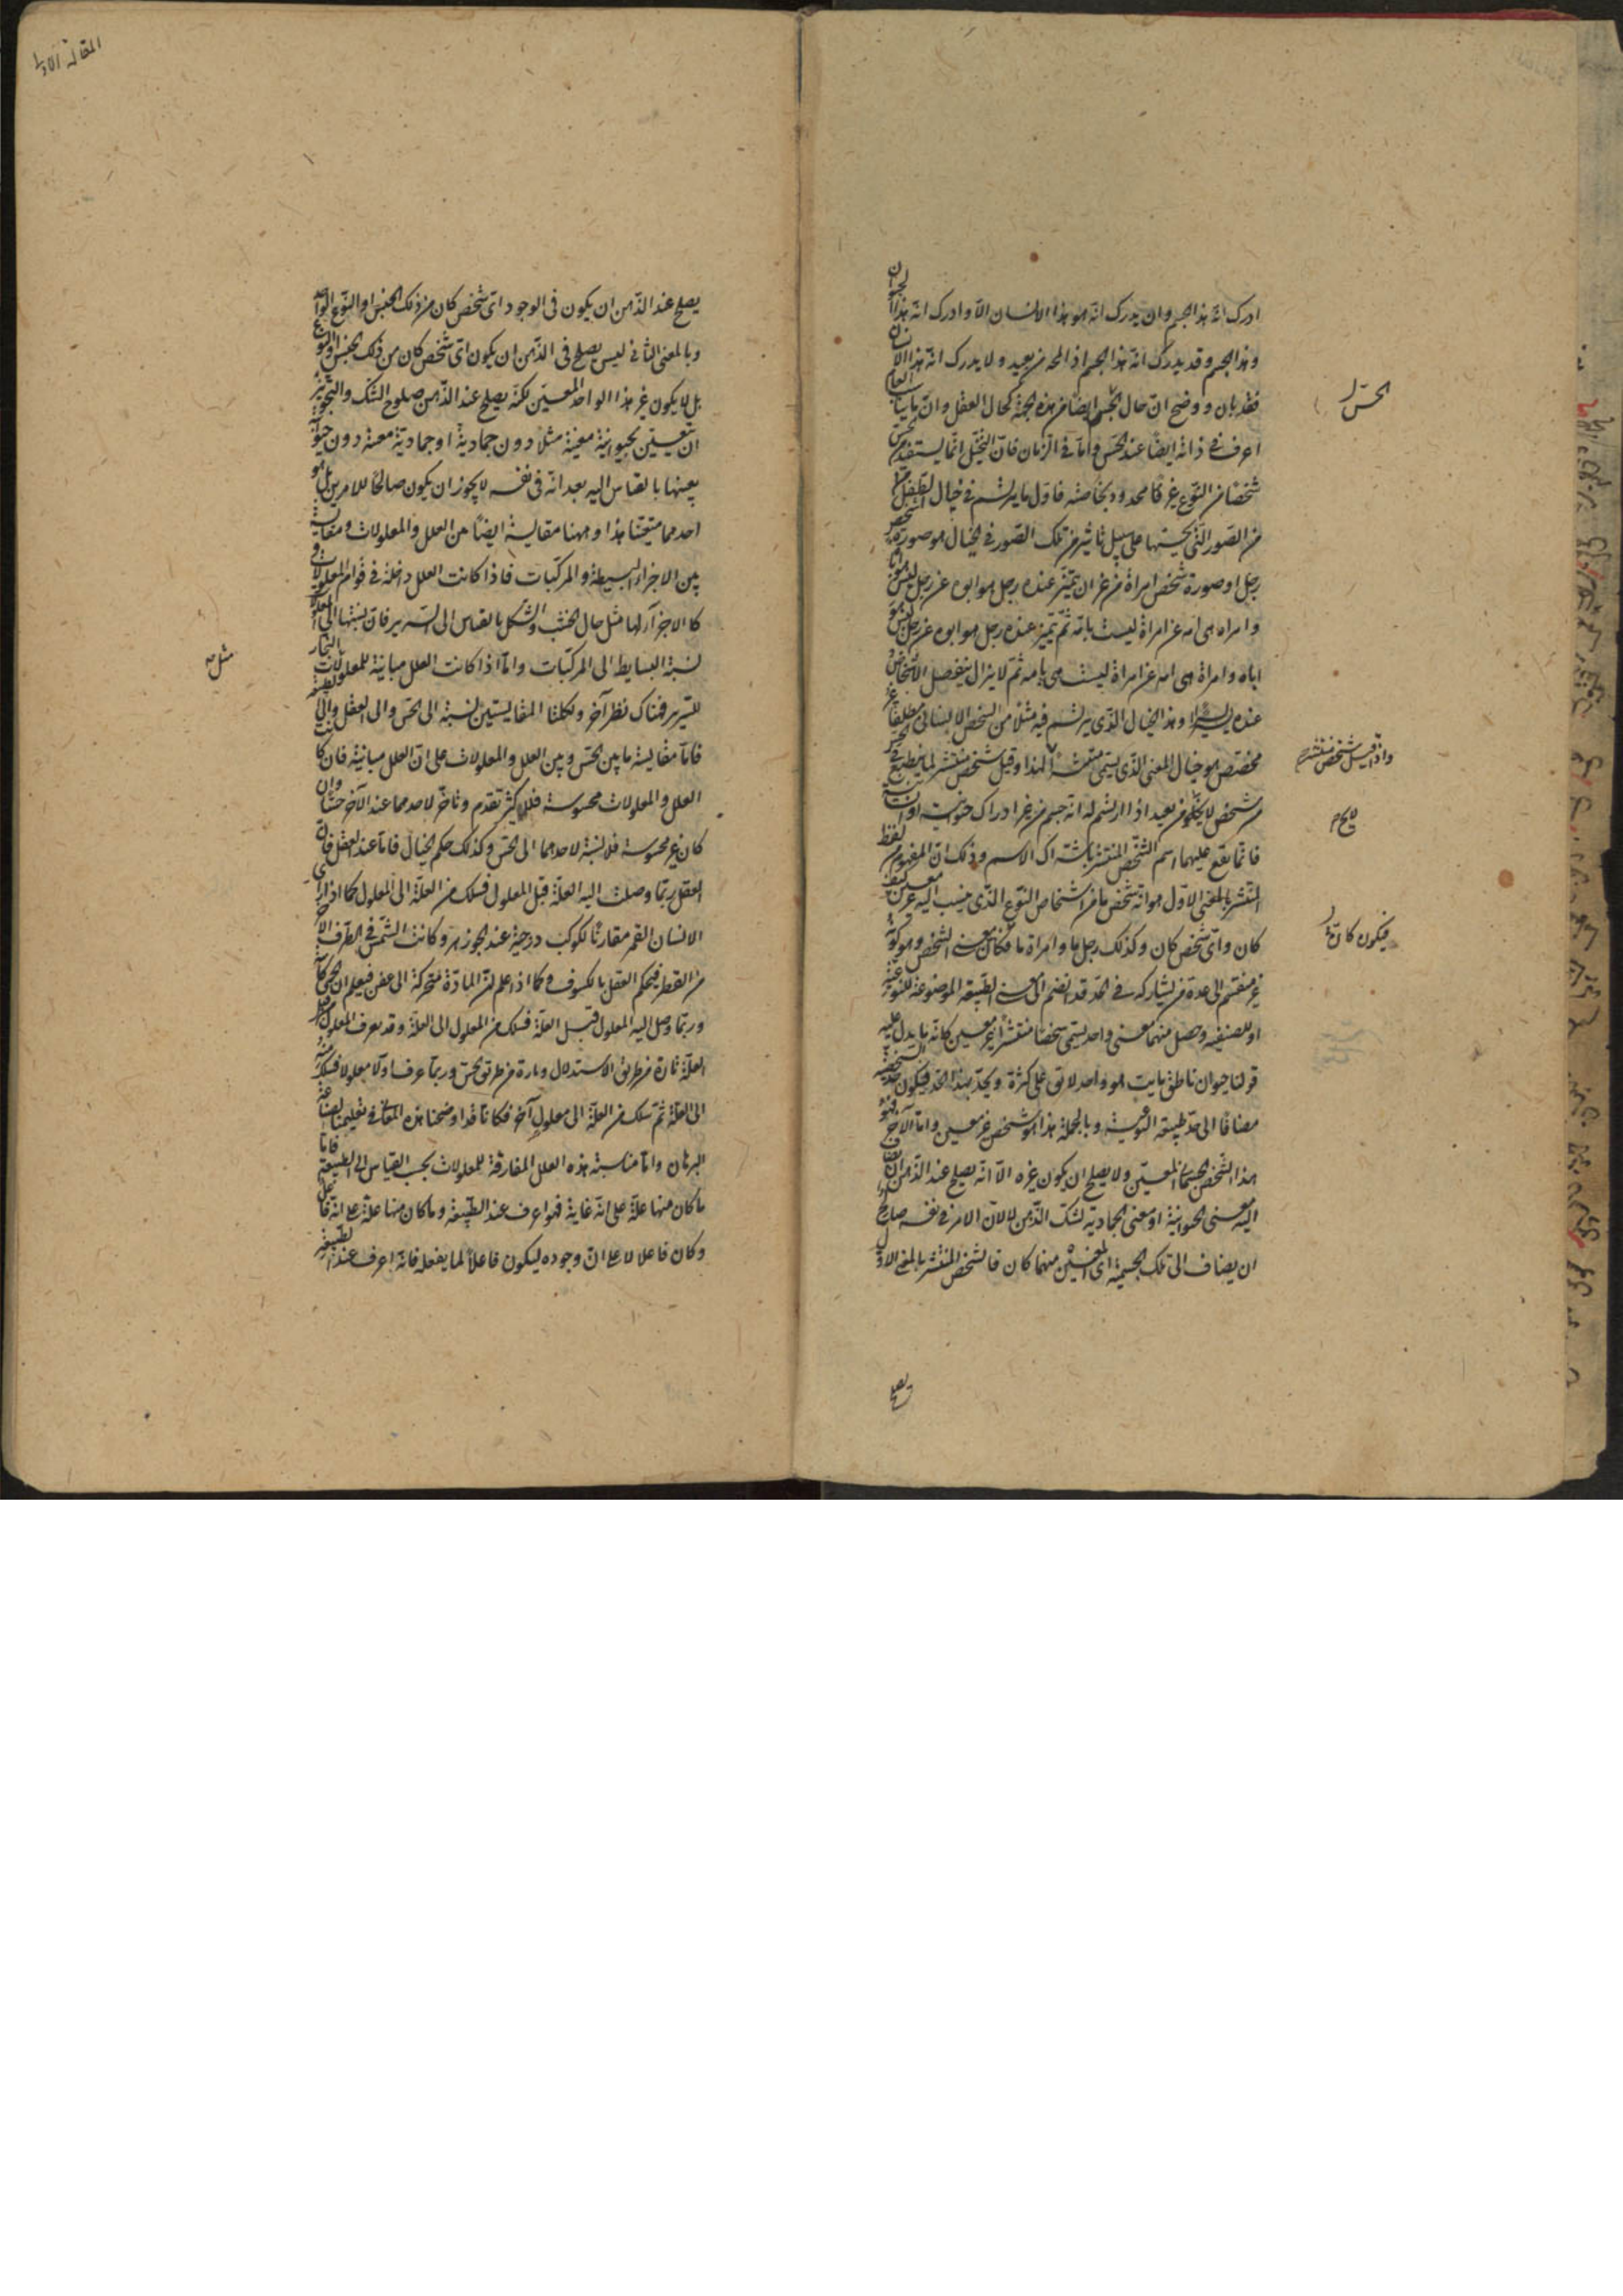 ادرك انّه هذا الجسم وان يدرك انّه هو هذا الانسان الّا وادرك انّه هذا الحيوان
وهذا الجسم وقد يدرك انّه هذا الجسم اذ المحه من بعيد ولا يدرك انّه هذا الانسان
فقد بان ووضح انّ حال الحسّ ايضًا من هذه الجهة كحال العقل وانّ ما يناسب العام
اعرف فى ذاته ايضًا عند الحسّ وامّا فى الزمان فانّ التخيّل انّما يستفيد من الحس
شخصًا من النّوع غير محدود بخاصّته فاوّل ما يرتسم فى خيال الطفل
من الصّور الّتى يحسّها على سبيل تاثير من تلك الصّور فى الخيال هو صورة شخص
رجل او صورة شخص امراة من غير ان يتميّز عنده رجل هو ابوه عن رجل ليس هو اباه
وامراة هى امه عن امراة ليست بامّه ثمّ يتميز عنده رجل هو ابوه عن رجل ليس هو
اباه وامراة هى امه عن امراة ليست هى بامه ثم لا يزال ينفصل الاشخاص
عنده يسيرًا يسيرًا وهذا الخيال الّذى يرتسم فيه مثلا من الشخص الانسانى مطلقًا غير
مخصّص هو خيال المعنى الّذى يسمّى منتشرًا واذا قيل شخص منتشر لهذا وقيل شخص منتشر لما ينطبع فى الحس
من شخص لا محالة من بعيد اذا ارتسم له انّه جسم من غير ادراك حيوانيّة او انسانيّة
فانّما يقع عليهما اسم الشخص المنتشر باشتراك الاسم وذلك انّ المفهوم من لفظ
المنتشر بالمعنى الاوّل هو انّه شخص ما من اشخاص النّوع الّذى ينسب اليه غير معين كيف
كان واىّ شخص كان وكذلك رجل ما وامراة ما فيكون كانّ معنى الشخص وهو كونه
غير منقسم الى عدة من يشاركه فى الحدّ قد انضم الى معنى الطبيعة الموضوعة للنوعيّة
او للصنفيه وحصل منهما معنى واحد يسمّى شخصًا منتشرًا غير معين كانّه ما يدل عليه
قولنا حيوان ناطق مايت هو واحد لا يق على كثرة ويحدّ بهذا الحدّ فيكون حدّ الشخصيّة
مضافًا الى حدّ طبيعة النّوعيّة وبالجملة هذا هو شخص غير معين وامّا الآخر فهو
هذا الشخص الجسمانى المعيّن ولا يصلح ان يكون غيره الّا انّه يصلح عند الذّهن ان يضاف
اليه معنى الحيوانية او معنى الجمادية لشكّ الذّهن لا لانّ الامر فى نفسه صالح
ان يضاف الى تلك الجسمية اىّ المعنيين منهما كان فالشخص المنتشر بالمعنى الاوّل
الحسّ
واذا قيل شخص منتشر
لا محالة
فيكون كانّ
يصلح
المقالة الاولى
يصلح عند الذّهن ان يكون فى الوجود اىّ شخص كان من ذلك الجنس او النّوع الواحد
وبالمعنى الثانى ليس يصلح فى الذّهن ان يكون اىّ شخص كان من ذلك الجنس او النوع
بل لا يكون غير هذا الواحد المعيّن لكنّه يصلح عند الذّهن صلوح الشّك والتّجويز
ان يتعيّن بحيوانيّة معيّنة مثلا دون جماديّة او جماديّة معينة دون حيوانيّة
بعينها بالقياس اليه بعد انّه فى نفسه لا يجوز ان يكون صالحًا للامرين بل هو
احدهما متعيّنا هذا وههنا مقايسة ايضًا من العلل والمعلولات ومقايسة
بين الاجزاء البسيطة والمركّبات فاذا كانت العلل داخلة فى قوام المعلولات و
كالاجزاء لها مثل حال الخشب والشكل بالقياس الى السّرير فانّ نسبتها الى المعلولات
نسبة البسايط الى المركّبات وامّا اذا كانت العلل مباينة للمعلولات مثل النجار
للسّرير فهناك نظر آخر ولكلتا المقايستين نسبة الى الحسّ والى العقل والى الطبيعة
فامّا مقايسة ما بين الحسّ وبين العلل والمعلولات على انّ العلل مباينة فان كانت
العلل والمعلولات محسوسة فلا كثير تقدّم وتاخّر لاحدهما عند الآخر حسًّا وان
كان غير محسوسة فلا نسبة لاحدهما الى الحسّ وكذلك حكم الخيال فامّا عند العقل فانّ
العقل ربّما وصلت اليه العلّة قبل المعلول فسلك من العلّة الى المعلول كما اذا راى
الانسان القمر مقارنًا لكوكب درجته عند الجوزهر وكانت الشّمس فى الطّرف الآخر
من القطر فيحكم العقل بالكسوف وكما اذا علم انّ المادّة متحركة الى عفن فيعلم ان الحمى كائنة
وربّما وصل اليه المعلول قبل العلّة فسلك من المعلول الى العلّة وقد يعرف المعلول قبل
العلّة تارة من طريق الاستدلال وتارة من طريق الحسّ وربما عرف اولًا معلولا فسلك منه
الى العلّة ثمّ سلك من العلّة الى معلول آخر فكانّا قد اوضحنا هذه المعانى فى تعليمنا لصناعة
البرهان وامّا مناسبة هذه العلل المفارقة للمعلولات بحسب القياس الى الطبيعة فانّ
ما كان منها علّة على انّه غاية فهو اعرف عند الطّبيعة وما كان منها علّة على انّه فاعل
وكان فاعلا لا على انّ وجوده ليكون فاعلًا لما يفعله فانّه اعرف عند الطبيعة
مثل